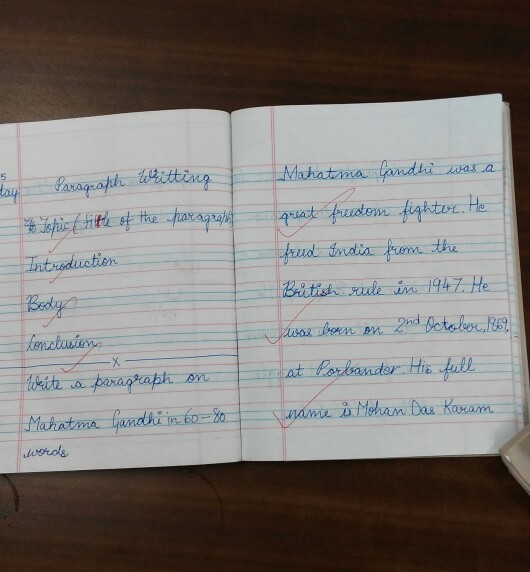 5
day
Paragraph Writting
Topic (Title of the paragraph
Introduction
Body
Conclusion
X
Write a paragraph on
Mahatma Gandhi in 60-80
words
Mahatma Gandhi was a
great freedom fighter. He
freed India from the
British rule in 1947. He
was born on 2nd October, 1869,
at Porbandar. His full
name is Mohan Das Karam